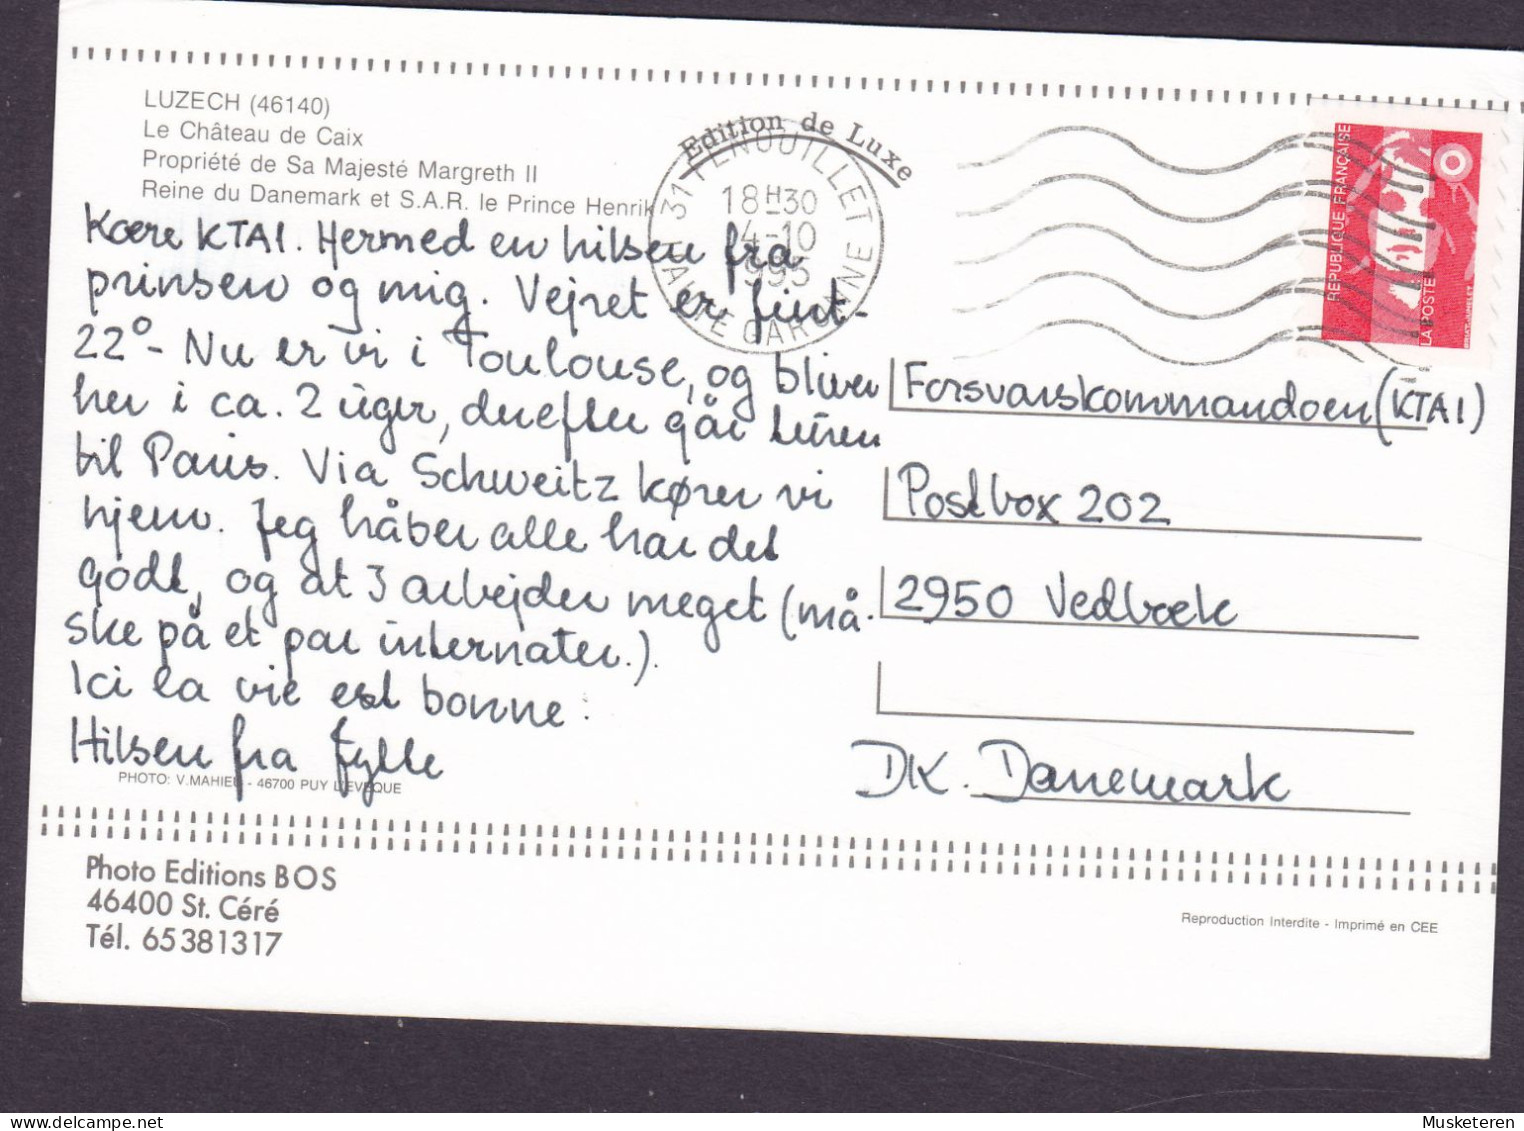 LUZECH (46140)
Le Château de Caix
Propriété de Sa Majesté Margreth II
Reine du Danemark et S.A.R. le Prince Henrik
Edition de Luxe
31 FENOUILLET
18H30
4-10
1995
HAUTE GARONNE
REPUBLIQUE FRANÇAISE
LA POSTE
Kære KTA1. Hermed en hilsen fra
prinsen og mig. Vejret er fint -
22° - Nu er vi i Toulouse, og bliver
her i ca. 2 uger, derefter går turen
til Paris. Via Schweitz kører vi
hjem. Jeg håber alle har det
godt, og at I arbejder meget (må-
ske på et par internater.).
Ici la vie est bonne:
Hilsen fra Jylle
Forsvarskommandoen (KTA1)
Postbox 202
2950 Vedbæk
DK. Danemark
PHOTO: V.MAHIEU - 46700 PUY L'EVEQUE
Photo Editions BOS
46400 St. Céré
Tél. 65381317
Reproduction Interdite - Imprimé en CEE
Musketeren